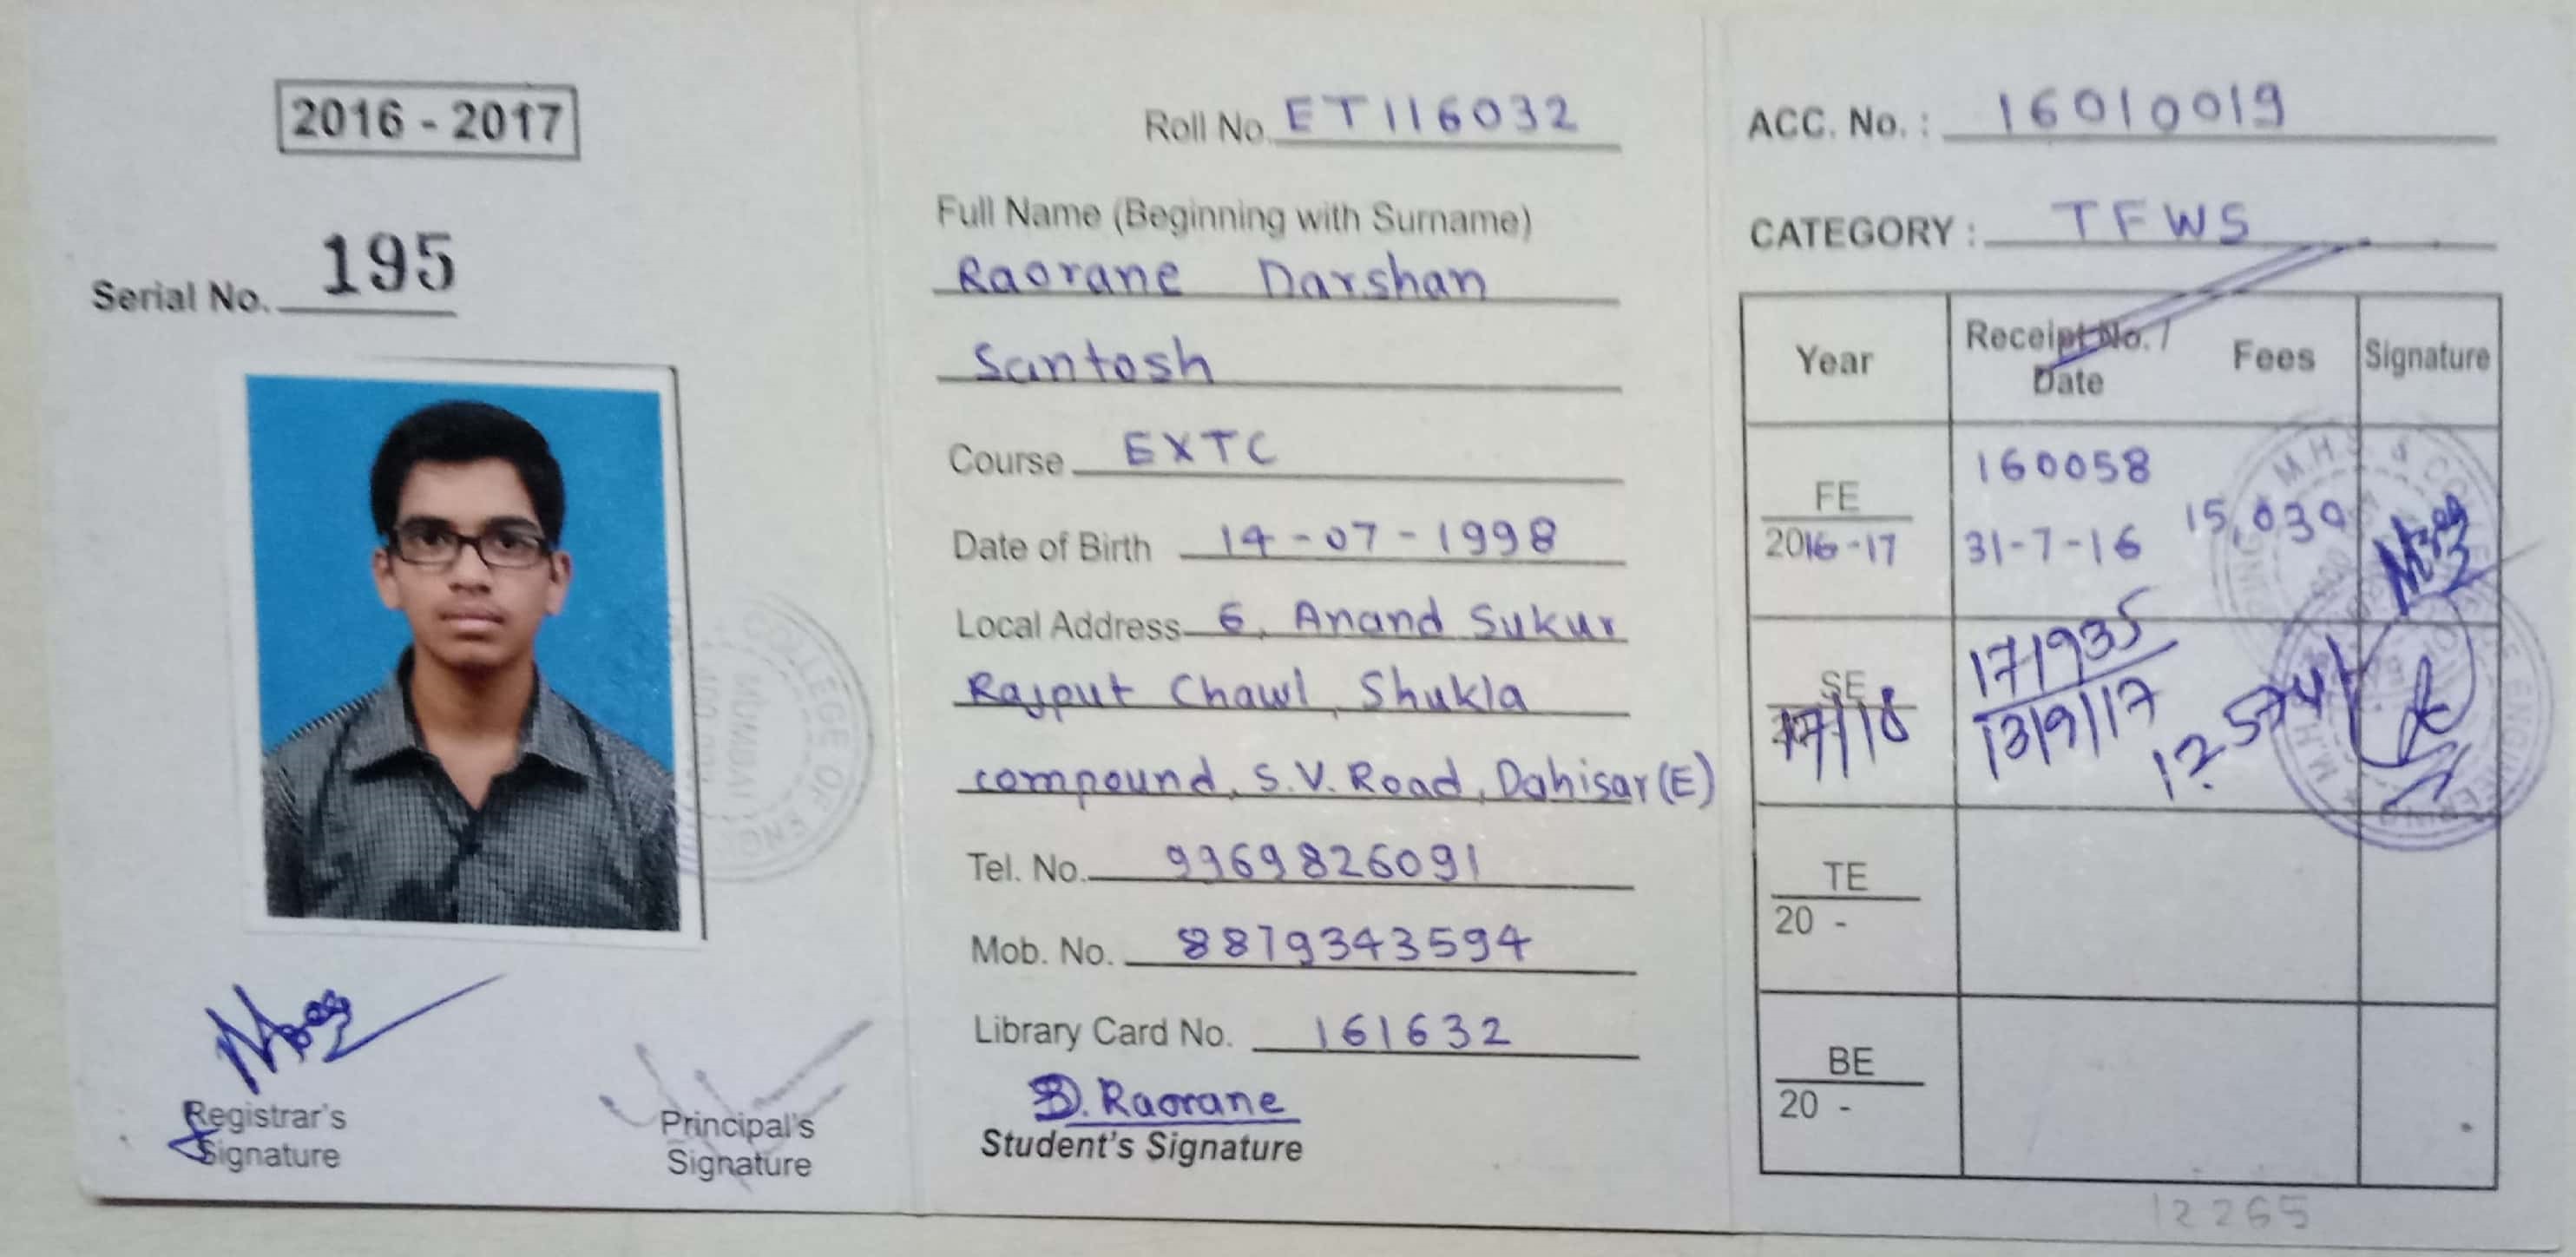 2016 - 2017
Serial No. 195
Registrar's
Signature
Principal's
Signature
Roll No. ET116032
Full Name (Beginning with Surname)
Raorane Darshan
Santosh
Course EXTC
Date of Birth 14-07-1998
Local Address 6, Anand Sukur
Rajput Chawl, Shukla
compound, S.V. Road, Dahisar (E)
Tel. No. 9969826091
Mob. No. 8879343594
Library Card No. 161632
D. Raorane
Student's Signature
ACC. No. : 16010019
CATEGORY : TFWS
Year Receipt No. / Date Fees Signature
FE 160058
2016-17 31-7-16 15,030
SE 171935
17/18 13/9/17
TE
20 -
BE
20 -
12265
COLLEGE OF ENG
MUMBAI